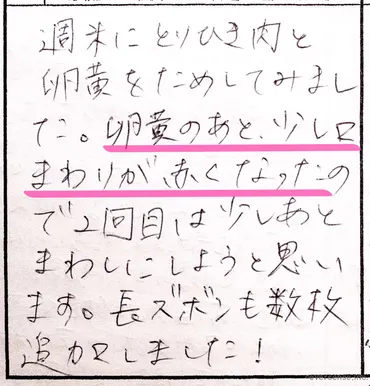 週末にとりひき肉と
卵黄をためしてみまし
た。卵黄のあと、少し口
まわりが赤くなったの
で2回目は少しあと
まわしにしようと思い
ます。長ズボンも数枚
追加しました！